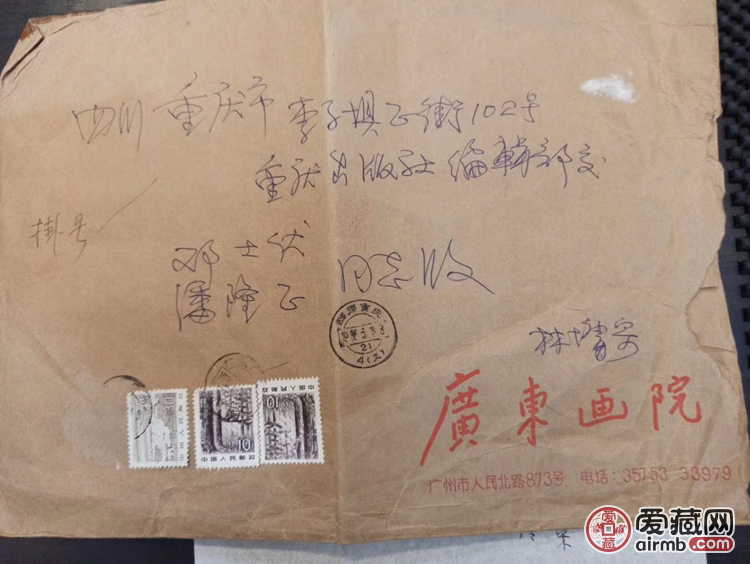 四川 重庆市 李子坝正街102号
重庆出版社编辑部交
挂号
邓士伏
潘隆正 同志收
四川重庆
21
4(支)
林墉寄
10
中国人民邮政
10
中国人民邮政
廣東画院
广州市人民北路873号 电话:35753 33979
爱藏网
airmb.com